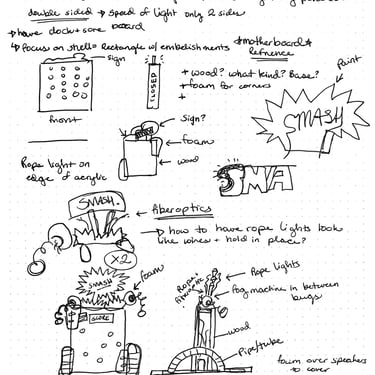 double sided → speed of light only 2 sides
→ have clock + score board
↳ Focus on shell = Rectangle w/ embelishments
*motherboard*
Refrence
sign
CLOSED
+ wood? what kind? Base?
+ foam for corners
+
Paint
SMASH
front
sign?
foam
wood
SMA
Rope light on
edge of acrylic
SMASH
Fiberoptics
→ how to have rope lights look
like wires + hold in place?
X2
SMASH
foam
SCORE
Rope lights
Fog machine in between
wood
Pipe/tube
foam over speakers
to cover